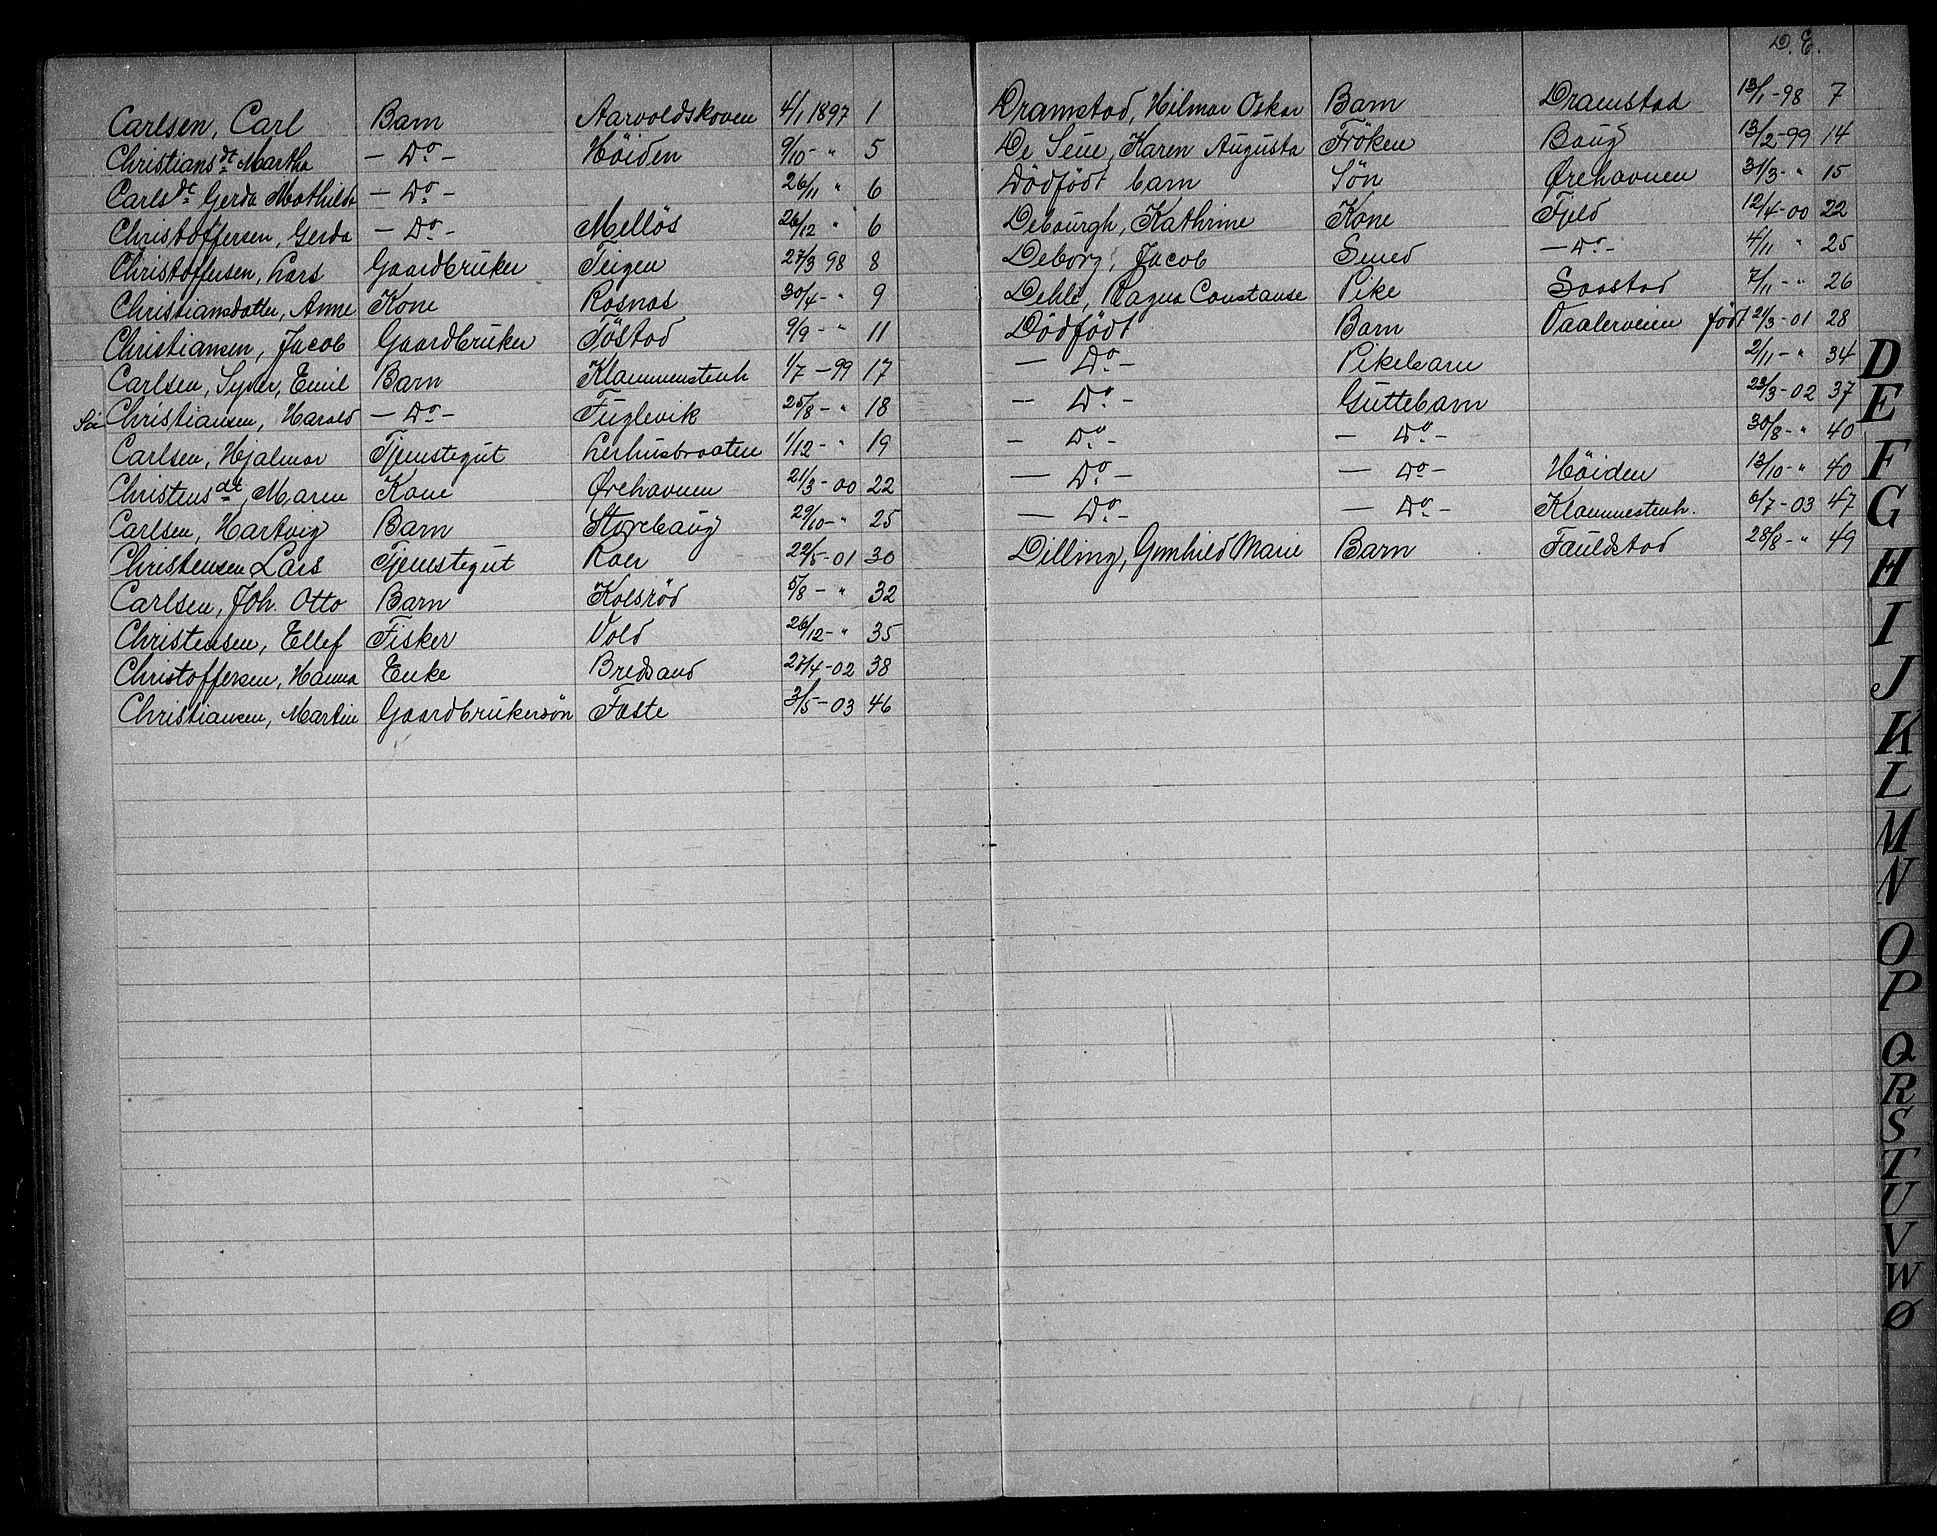 Carlsen, Carl Barn Aarvoldskoven 4/1 1897 1
Christiansdt Martha — Do — Höiden 9/10 - " 5
Carlsdt Gerda Mathilda — Do — 26/11 " 6
Christoffersen, Gerda — Do — Mellös 26/12 " 6
Christoffersen, Lars Gaardbruker Teigen 27/3 98 8
Christiansdatter, Anne Kone Rosnæs 30/4 - " 9
Christiansen, Jacob Gaardbruker Töstad 9/9 - " 11
Carlsen, Syver, Emil Barn Klommestenh 1/7 - 99 17
Christiansen, Harald — Do — Fuglevik 25/8 - " 18
Carlsen, Hjalmar Tjenstegut Lerhusbraaten 1/12 - " 19
Christensdt, Maren Kone Ørehavnen 21/3 - 00 22
Carlsen, Hartvig Barn Storebaug 29/10 - " 25
Christensen Lars Tjenstegut Roer 22/5 - 01 30
Carlsen, Joh. Otto Barn Kolsröd 5/8 - " 32
Christensen, Ellef Fisker Vold 26/12 - " 35
Christoffersen, Hanna Enke Bredsand 27/4 - 02 38
Christiansen, Martin Gaardbrukersön Faste 3/5 - 03 46
D. E.
Dramstad, Hilmar Oskar Barn Dramstad 13/1 - 98 7
De Seue, Karen Augusta Fröken Baug 13/2 - 99 14
Dödfödt barn Sön Ørehavnen 31/3 - " 15
Debourgh, Kathrine Kone Fjeld 12/4 - 00 22
Deborg, Jacob Smed — Do — 4/11 " 25
Dehli, Ragna Constanse Pike Saastad 7/11 - " 26
Dödfödt Barn Vaalerveien födt 21/3 - 01 28
— Do — Pikebarn 2/11 - " 34
— Do — Guttebarn 23/3 - 02 37
— Do — — Do — 30/8 - " 40
— Do — — Do — Höiden 13/10 - " 40
— Do — — Do — Klommestenh. 6/7 - 03 47
Dilling, Gunhild Marie Barn Fauldstad 28/8 - " 49
D
E
F
G
H
I
J
K
L
M
N
O
P
Q
R
S
T
U
V
W
Ø